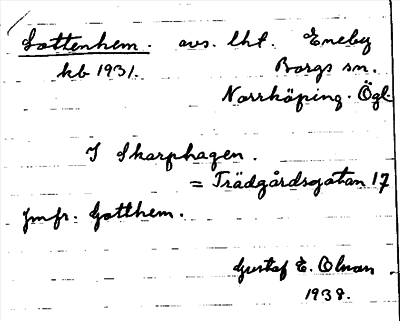 Lottenhem. avs. lht. Eneby
kb 1931. Borgs sn.
Norrköping. Ögl.
I Skarphagen.
= Trädgårdsgatan 17
Jmfr. Gotthem.
Gustaf E. Olman
1938.